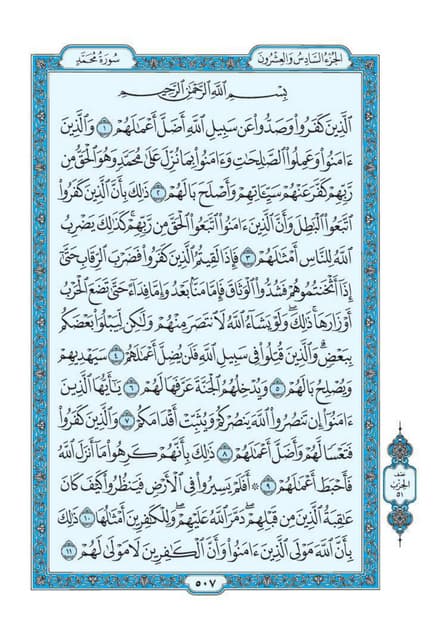 الجزء السادس والعشرون
سورة محمد
بِسْمِ اللَّهِ الرَّحْمَٰنِ الرَّحِيمِ
الَّذِينَ كَفَرُوا وَصَدُّوا عَن سَبِيلِ اللَّهِ أَضَلَّ أَعْمَٰلَهُمْ ١ وَالَّذِينَ
ءَامَنُوا وَعَمِلُوا الصَّٰلِحَٰتِ وَءَامَنُوا بِمَا نُزِّلَ عَلَىٰ مُحَمَّدٍ وَهُوَ الْحَقُّ مِن
رَّبِّهِمْ كَفَّرَ عَنْهُمْ سَيِّـَٔاتِهِمْ وَأَصْلَحَ بَالَهُمْ ٢ ذَٰلِكَ بِأَنَّ الَّذِينَ كَفَرُوا
اتَّبَعُوا الْبَٰطِلَ وَأَنَّ الَّذِينَ ءَامَنُوا اتَّبَعُوا الْحَقَّ مِن رَّبِّهِمْ ۚ كَذَٰلِكَ يَضْرِبُ
اللَّهُ لِلنَّاسِ أَمْثَٰلَهُمْ ٣ فَإِذَا لَقِيتُمُ الَّذِينَ كَفَرُوا فَضَرْبَ الرِّقَابِ حَتَّىٰ
إِذَا أَثْخَنتُمُوهُمْ فَشُدُّوا الْوَثَاقَ فَإِمَّا مَنًّا بَعْدُ وَإِمَّا فِدَاءً حَتَّىٰ تَضَعَ الْحَرْبُ
أَوْزَارَهَا ۚ ذَٰلِكَ ۖ وَلَوْ يَشَاءُ اللَّهُ لَانتَصَرَ مِنْهُمْ وَلَٰكِن لِّيَبْلُوَا بَعْضَكُم
بِبَعْضٍ ۗ وَالَّذِينَ قُتِلُوا فِي سَبِيلِ اللَّهِ فَلَن يُضِلَّ أَعْمَٰلَهُمْ ٤ سَيَهْدِيهِمْ
وَيُصْلِحُ بَالَهُمْ ٥ وَيُدْخِلُهُمُ الْجَنَّةَ عَرَّفَهَا لَهُمْ ٦ يَٰٓأَيُّهَا الَّذِينَ
ءَامَنُوا إِن تَنصُرُوا اللَّهَ يَنصُرْكُمْ وَيُثَبِّتْ أَقْدَامَكُمْ ٧ وَالَّذِينَ كَفَرُوا
فَتَعْسًا لَّهُمْ وَأَضَلَّ أَعْمَٰلَهُمْ ٨ ذَٰلِكَ بِأَنَّهُمْ كَرِهُوا مَا أَنزَلَ اللَّهُ
فَأَحْبَطَ أَعْمَٰلَهُمْ ٩ ۞ أَفَلَمْ يَسِيرُوا فِي الْأَرْضِ فَيَنظُرُوا كَيْفَ كَانَ
عَٰقِبَةُ الَّذِينَ مِن قَبْلِهِمْ ۚ دَمَّرَ اللَّهُ عَلَيْهِمْ ۖ وَلِلْكَٰفِرِينَ أَمْثَٰلُهَا ١٠ ذَٰلِكَ
بِأَنَّ اللَّهَ مَوْلَى الَّذِينَ ءَامَنُوا وَأَنَّ الْكَٰفِرِينَ لَا مَوْلَىٰ لَهُمْ ١١
نصف
الحزب
٥١
٥٠٧